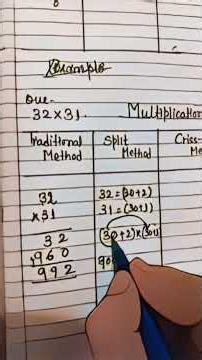 Example
Que-
32×31
Multiplication
Traditional Method
Split Method
Criss-
Me
32
×31
32
960
992
32=(30+2)
31=(30+1)
(30+2)×(30+1)
90